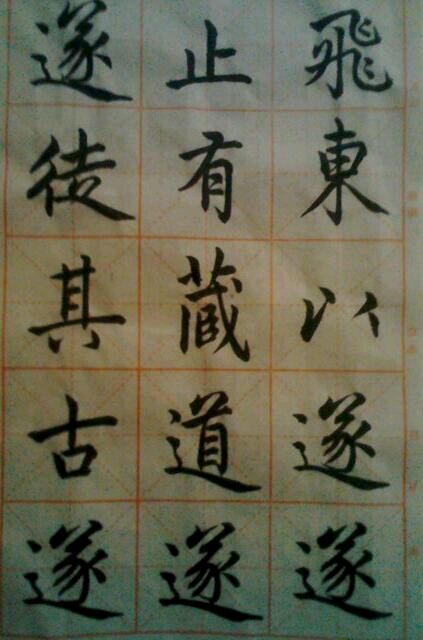 飛東以遂遂
止有蔵道遂
遂徒其古遂